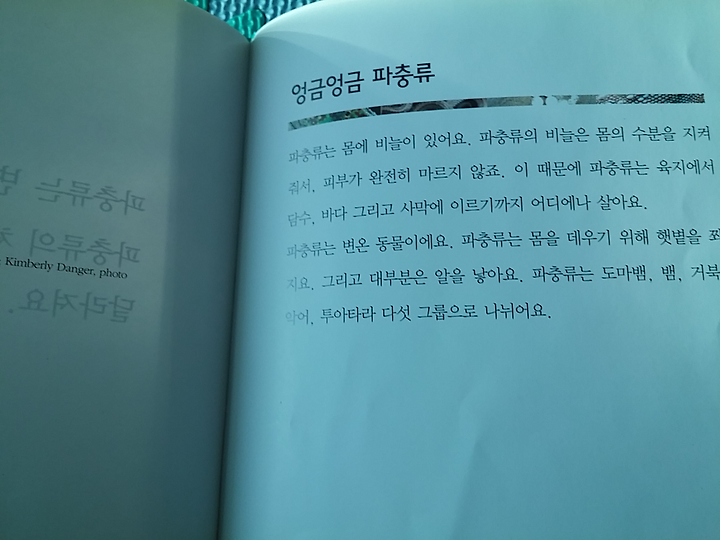 Kimberly Danger, photo
엉금엉금 파충류
파충류는 몸에 비늘이 있어요. 파충류의 비늘은 몸의 수분을 지켜
줘서, 피부가 완전히 마르지 않죠. 이 때문에 파충류는 육지에서
담수, 바다 그리고 사막에 이르기까지 어디에나 살아요.
파충류는 변온 동물이에요. 파충류는 몸을 데우기 위해 햇볕을 쬐
지요. 그리고 대부분은 알을 낳아요. 파충류는 도마뱀, 뱀, 거북
악어, 투아타라 다섯 그룹으로 나뉘어요.